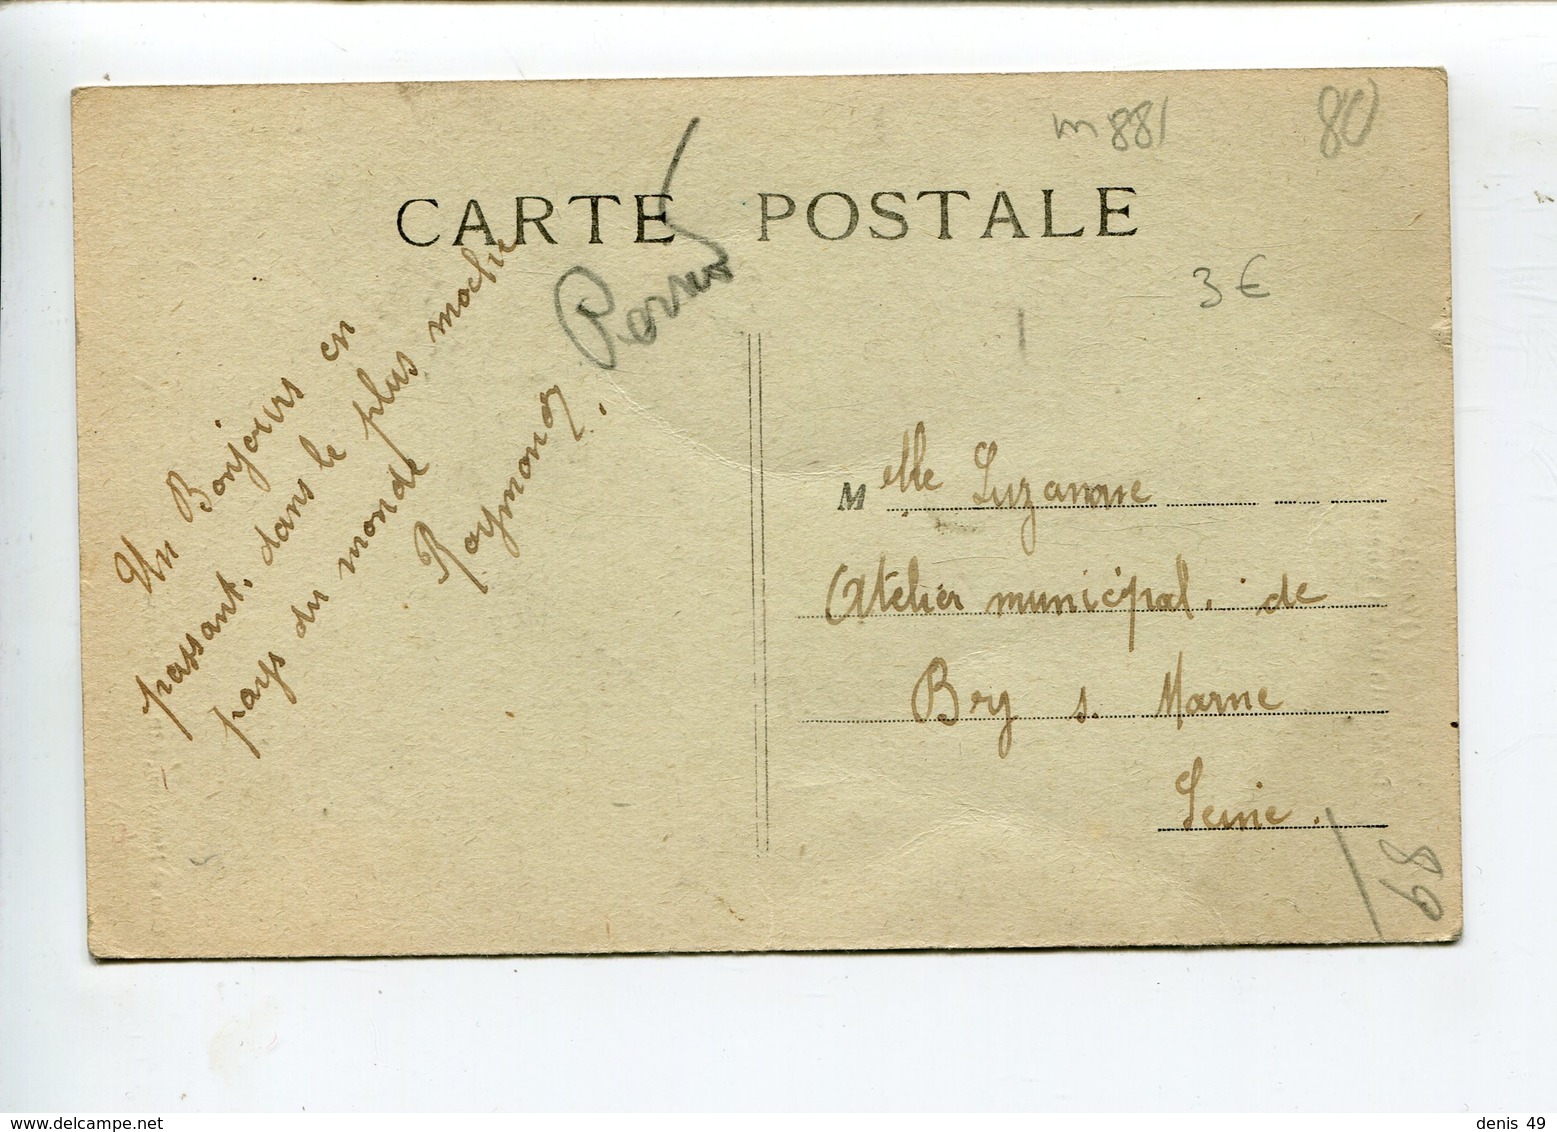 m881
80
CARTE POSTALE
3 €
Un Bonjours en
passant, dans le plus moche
pays du monde
Raymond.
Melle Suzanne
Atelier municipal. de
Bry s. Marne
Seine.
89
www.delcampe.net
denis 49